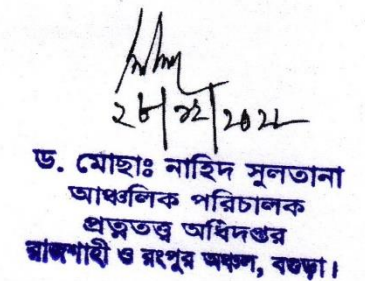 ২৮|১২|২০২২
ড. মোছাঃ নাহিদ সুলতানা
আঞ্চলিক পরিচালক
প্রত্নতত্ত্ব অধিদপ্তর
রাজশাহী ও রংপুর অঞ্চল, বগুড়া।